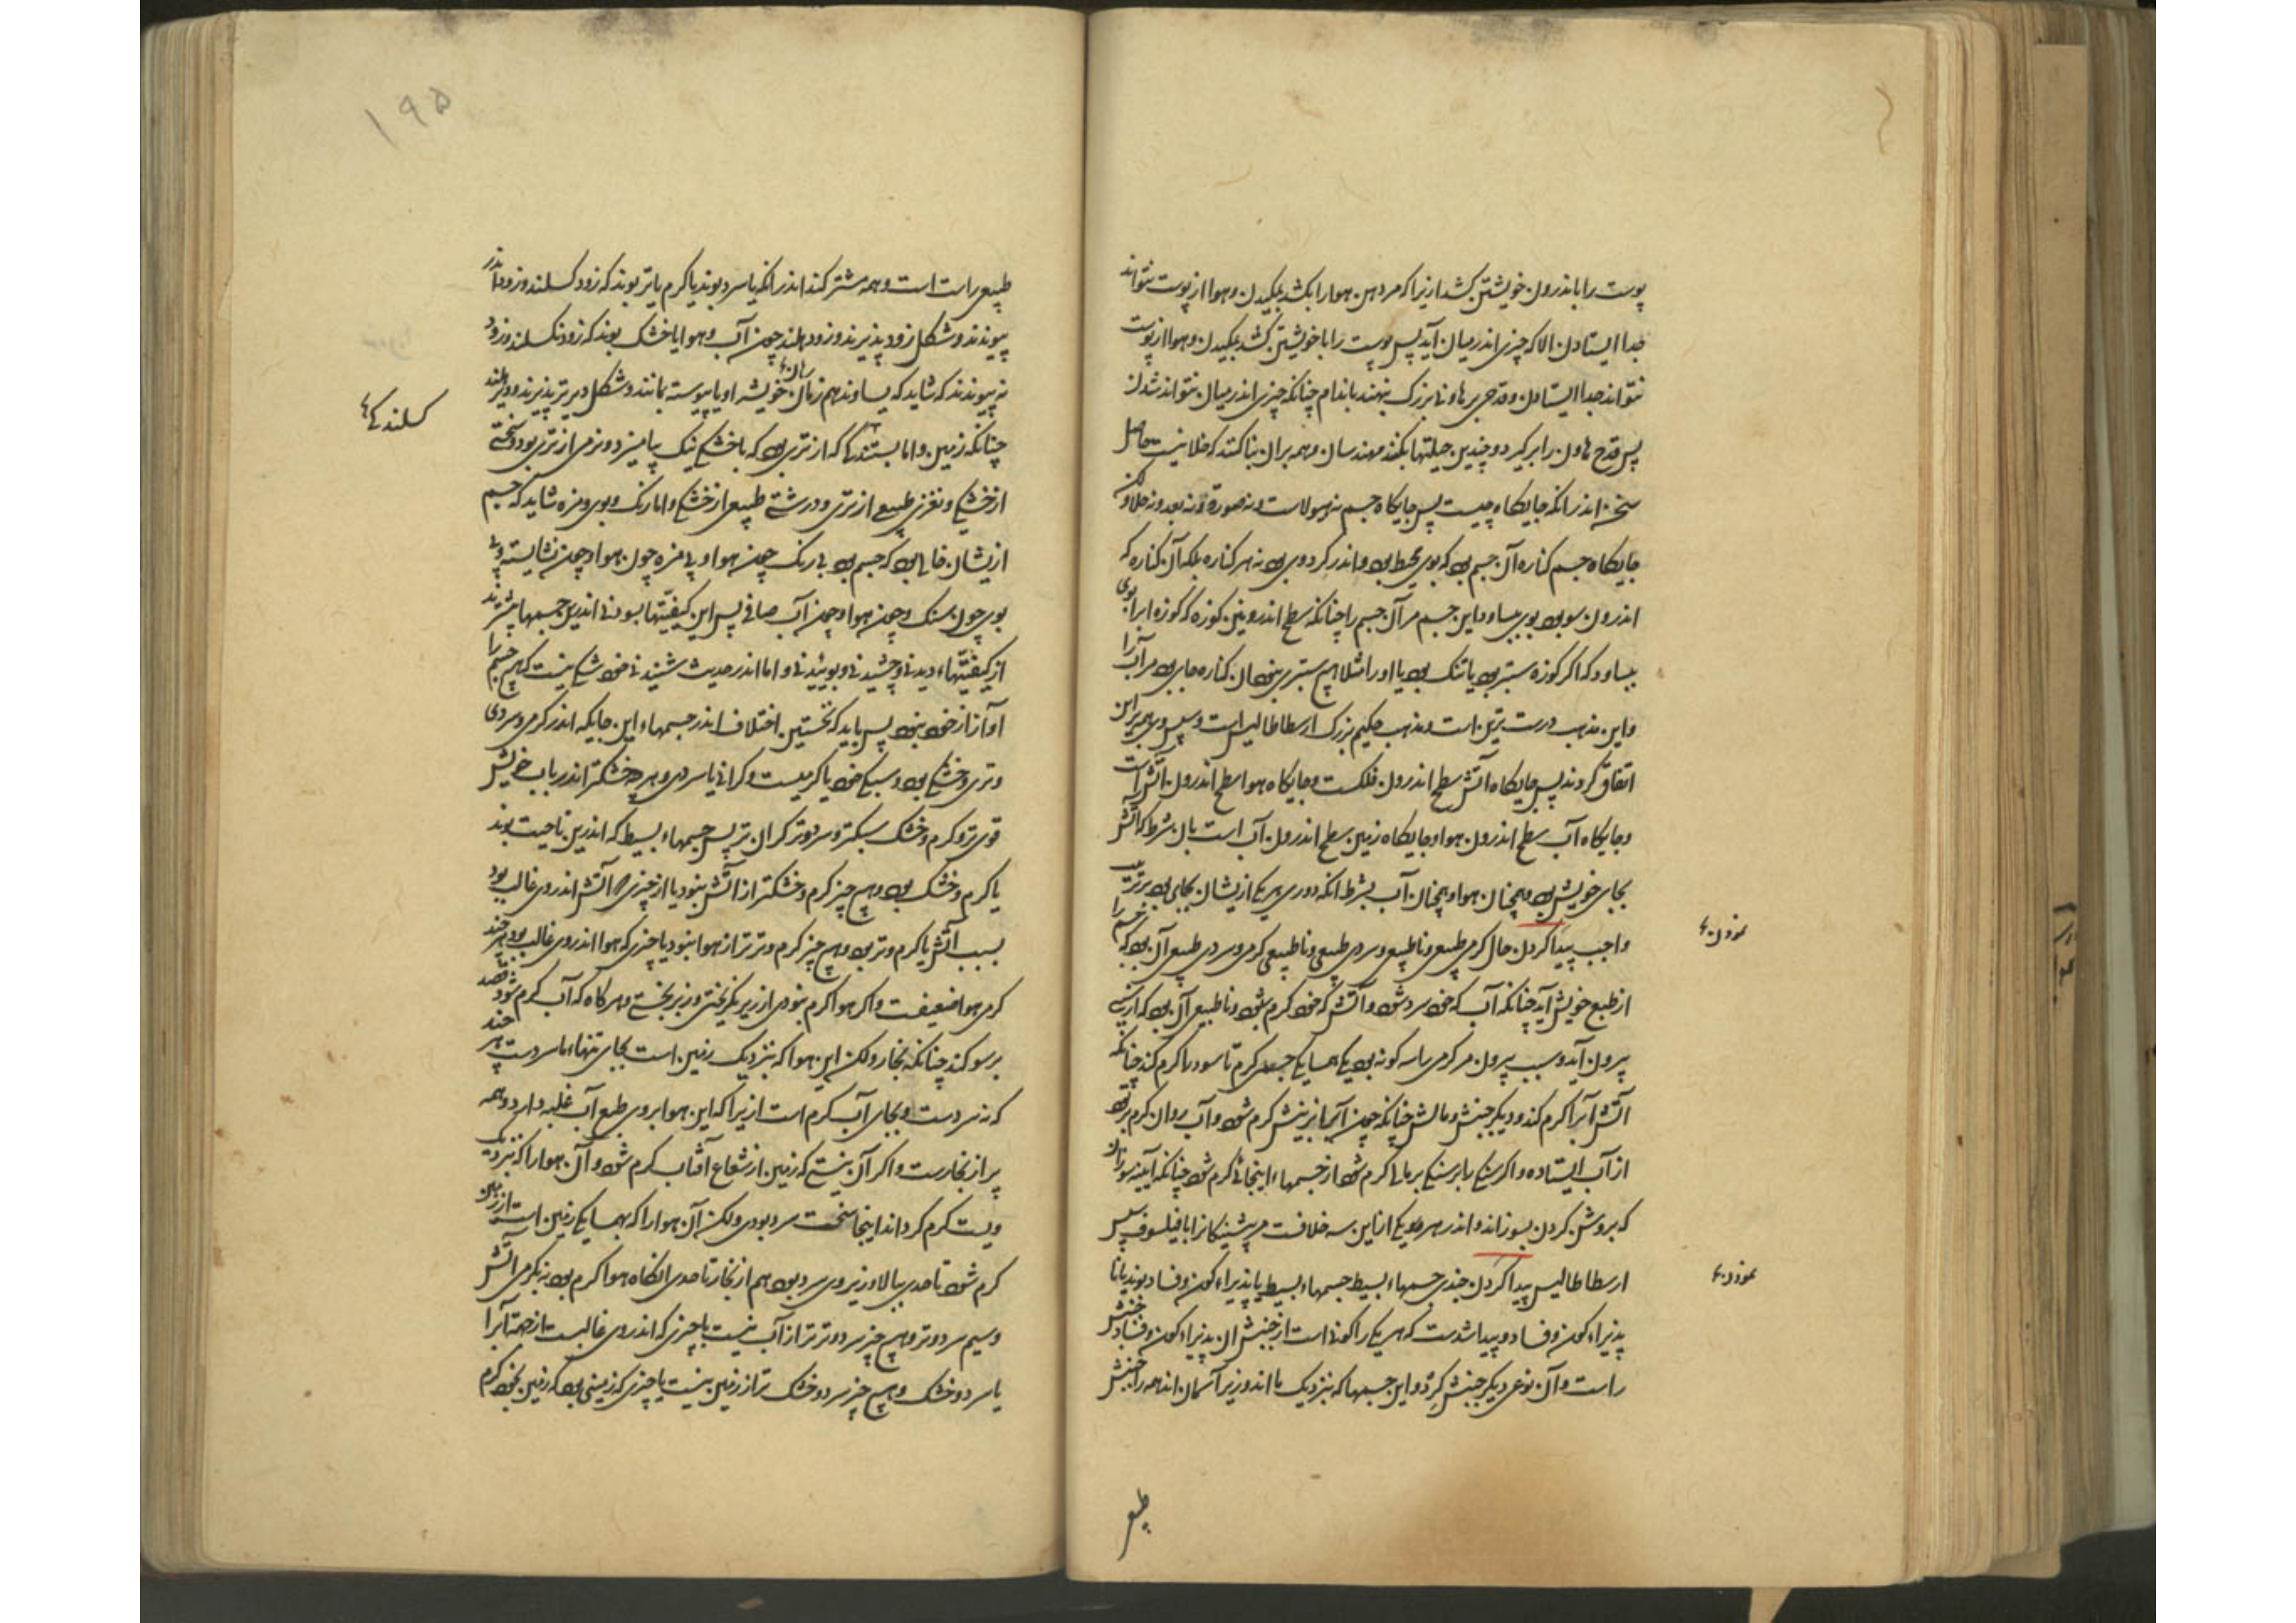 پوست را باندرون خویشتن کشد ازیرا که مردمی هوا را بکشد بمکیدن و هوا از پوست نتواند
جدا ایستادن الا که چیزی اندر میان آید پس پوست را با خویشتن کشد بمکیدن و هوا از پوست
نتواند جدا ایستادن و قدحی بر هاونی بزرگ نهند باندام چنانکه چیزی اندر میان نتواند شدن
پس قدح هاون را برگیرد و چندین حیلتها بکنند مهندسان و همه بران بنا کنند که خلا نیست حاصل
سخن اندر آنکه جایگاه چیست پس جایگاه جسم نه هیولاست و نه صورة و نه بعد و نه خلا و لکن
جایگاه جسم کناره آن جسم بود که بوی محیط بود و اندر گرد وی بود نه هر کناره بلکه آن کناره که
اندرون سو بود بوی بساود این جسم مر آن جسم را چنانکه سطح اندرونین کوزه که کوزه ابرا بوی
بساود که اگر کوزه ستبر بود یا تنک بود یا او را مثلا هیچ ستبری نبود آن کناره جای بود مر آب را
و این مذهب درست ترین است و مذهب حکیم بزرگ ارسطاطالیس است و سپس وی همه بر این
اتفاق کردند پس جایگاه آتش سطح اندرون فلکست و جایگاه هوا سطح اندرون آتش است
و جایگاه آب سطح اندرون هوا و جایگاه زمین سطح اندرون آب است بان شرط که آتش
بجای خویش بود و همچنان هوا و همچنان آب بشرط آنکه دوری هر یکی ازیشان بجایی بود بر ترتیب
نمودن
واجب پیدا کردن حال گرمی طبیعی و ناطبیعی و سردی طبیعی و ناطبیعی گرمی و سردی طبیعی آن بود که جسم را
از طبع خویش آید چنانکه آب که خود سرد شود و آتش که خود گرم شود و ناطبیعی آن بود که از سببی
بیرون آید و سبب بیرون مر گرمی را سه گونه بود یکی همسایگی جسمی گرم تا سرد را گرم کند چنانکه
آتش آب را گرم کند و دیگر جنبش و مالش چنانکه چون آبرا بجنبش گرم شود و آب روان گرم بود
از آب ایستاده و اگر سنگی را بر سنگی بر مالی گرم شود از جسمهاء اینجائی گرم شود چنانکه آیینه سوزان
که بروش کردن بسوزاند و اندر هر یکی ازین سه خلافست مر پیشینگانرا با فیلسوف سپس
نمودن
ارسطاطالیس پیدا کردن جنبش جسمهاء بسیط جسمهاء بسیط یا پذیراء کون و فساد بوند یا نا
پذیراء کون و فساد و پیدا شدست که هر یکی را گونه است از جنبش آن پذیراء کون و فساد جنبش
راست و آن نوعی دیگر جنبش گرد و این جسمها که بنزدیک ما اند و زیر آسمان اند همه را جنبش
طبیعی
۱۹۵
طبیعی راست است و همه مشترکند اندر آنکه یا سرد بوند یا گرم یا تر بوند که زود گسلند و زود اندر
پیوندند و شکل زود پذیرند و زود هلند چون آب و هوا یا خشک بوند که زود نگسلند و زود
نه پیوندند که شاید که بساوند هم زمان خویش او یا پیوسته بمانند و شکل دیرتر پذیرند و دیر هلند
گسلندگی
چنانکه زمین و اما که از تری بود که با خشکی نیک بیامیزد و نرمی از تری بود و سختی
از خشکی و نغزی طبیعی از تری و درشتی طبیعی از خشکی و اما رنگ و بوی و مزه شاید که جسم
ازیشان خالی بود که جسم بود بی رنگ چون هوا و بی مزه چون هوا و چون نشایسته و بی
بوی چون سنگ و چون هوا و چون آب صافی پس این کیفیتها بسودنی اندرین جسمها پیشترند
از کیفیتهاء دیدنی و چشیدنی و بوییدنی و اما اندر حدیث شنیدنی خود شک نیست که هیچ جسم را
آواز از خود نبود پس باید که نخستین اختلاف اندر جسمهاء این جایگه اندر گرمی و سردی
و تری و خشکی بود و سبکی خود یا گرمیست و گرانی یا سردی و هر چه خشکتر اندر باب خویش
قوی تر و گرم و خشک سبکتر و سرد و تر گران تر پس جسمهاء بسیط که اندرین ناحیت بوند
یا گرم و خشک بود و هیچ چیز گرم و خشکتر از آتش نبود یا از چیزی که آتش اندر وی غالب بود
بسبب آتش یا گرم و تر بود و هیچ چیز گرم و تر تر از هوا نبود یا چیزی که هوا اندر وی غالب بود هر چند
گرمی هوا ضعیفست و اگر هوا گرم نبودی از زیر نگریختی و زبر نجستی و هر گاه که آب گرم شود قصد
بر سو کند چنانکه بخار و لکن این هوا که بنزدیک زمین است بجای تنهاء ما سردست هر چند
که نه سردست و بجای آب گرم است ازیرا که این هوا بر وی طبع آب غلبه دارد و همه
پر از بخارست و اگر آن نیستی که زمین از شعاع آفتاب گرم شود و آن هوا را که نزدیک
ویست گرم گرداند اینجا سخت سرد بودی و لکن آن هوا را که بهمسایگی زمین است از زمین
گرم شود تا حدی ببالا و زبر وی سرد بود هم از بخار تا حدی آنگاه هوا گرم بود نه بگرمی آتش
و سیم سرد و تر و هیچ چیز سرد و تر تر از آب نیست یا چیزی که اندر وی غالبست از جمله آبرا
یا سرد و خشک و هیچ چیز سرد و خشک تر از زمین نیست یا چیزی که زمینی بود که زمین بخود گرم